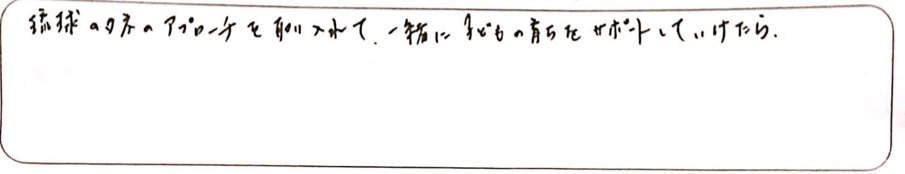 琉球のタネのアプローチを取り入れて、一緒に子どもの育ちをサポートしていけたら.